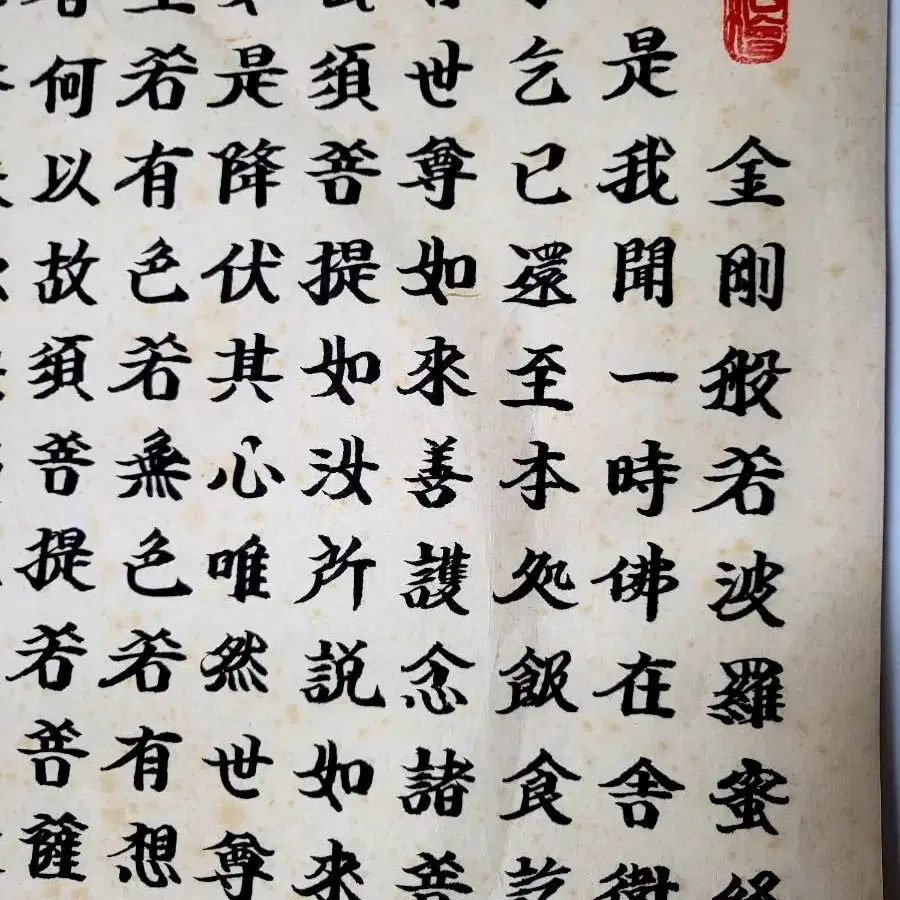 金剛般若波羅蜜經
是我聞一時佛在舍衛
乞已還至本処飯食訖
世尊如來善護念諸菩
須菩提如汝所説如來
是降伏其心唯然世尊
若有色若無色若有想
何以故須菩提若菩薩